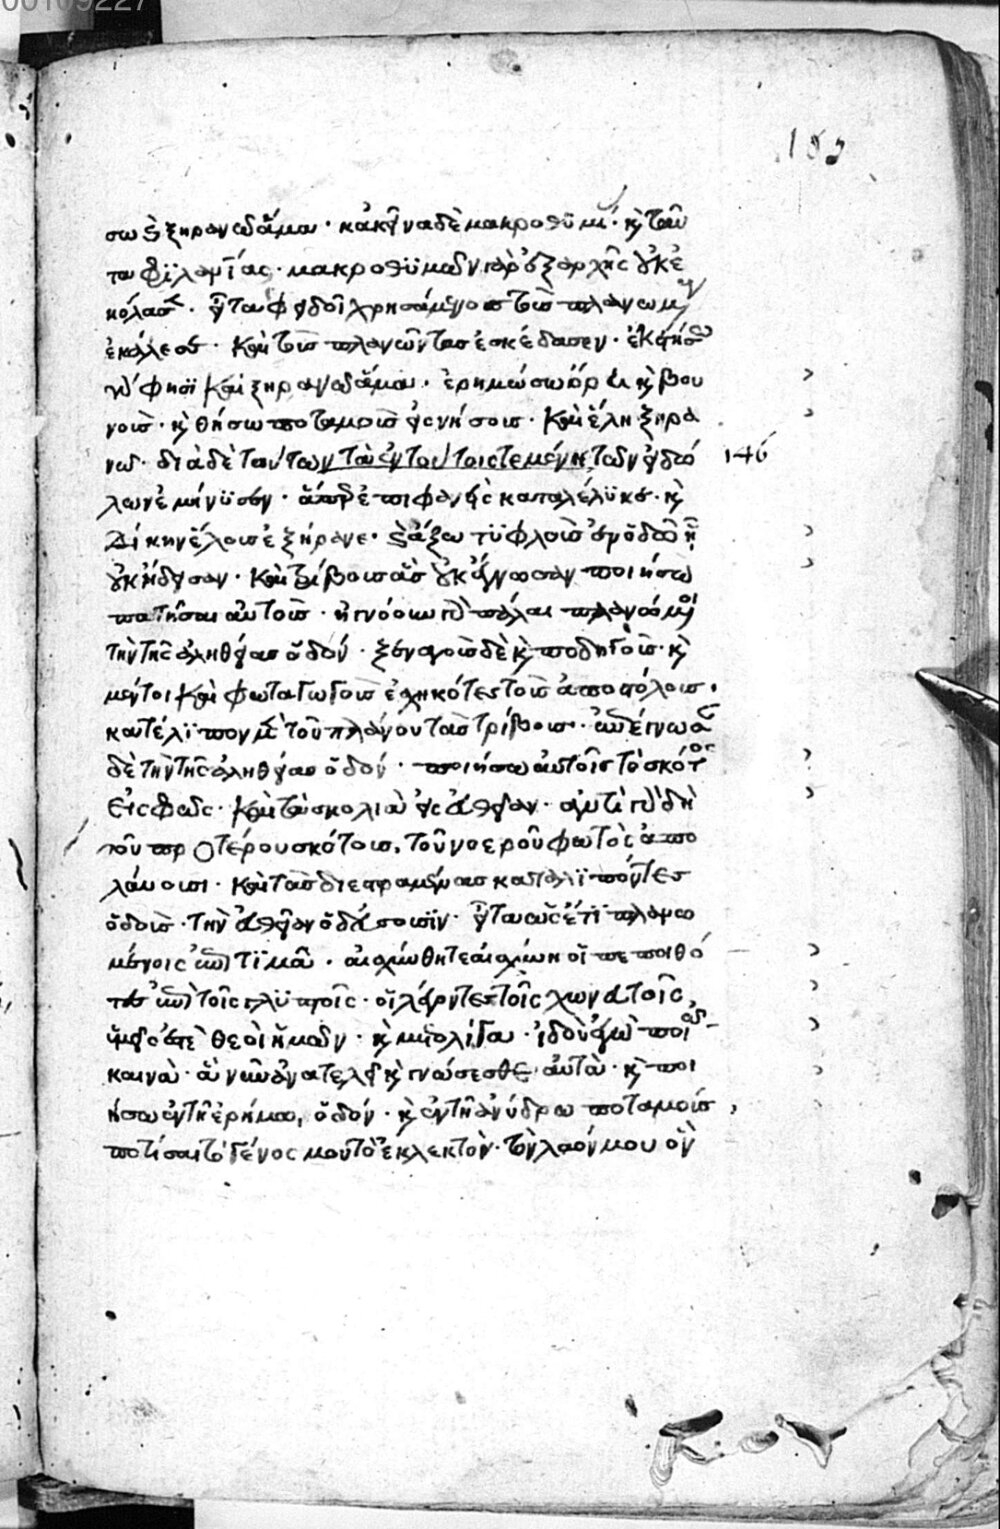 00109227
182
σω καὶ ξηρανῶ ἅμα · κἀκεῖνα δὲ μακροθυμεῖ · καὶ ταῦ
τα φιλανθρωπίας · μακροθυμῶν γὰρ ἐξαρχῆς οὐκ ἐ
κόλασεν · εἶτα φειδοῖ χρησάμενος τοὺς πλανωμένους
ἐκάλεσε · καὶ τοὺς πλανῶντας ἐσκέδασεν ·
φησὶ καὶ ξηρανῶ ἅμα · ἐρημώσω ὄρη καὶ βου
νοὺς · καὶ θήσω ποταμοὺς εἰς νήσους · καὶ ἕλη ξηρα
νῶ · διὰ δὲ τούτων τὰ ἐν τούτοις τεμένη τῶν εἰδώ 146
λων ἐμήνυσεν · ἅπερ ἐπιφανεὶς καταλέλυκε · καὶ
δίκην ἕλους ἐξήρανε · καὶ ἄξω τυφλοὺς ἐν ὁδῷ ᾗ
οὐκ ᾔδεισαν · καὶ τρίβους ἃς οὐκ ἔγνωσαν ποιήσω
πατῆσαι αὐτοὺς · ἠγνόουν γὰρ πάλαι πλανώμενοι
τὴν τῆς ἀληθείας ὁδόν · ξεναγοὺς δὲ καὶ ποδηγοὺς · καὶ
μέντοι καὶ φωταγωγοὺς ἐσχηκότες τοὺς ἀποστόλους ·
κατέλιπον μὲν τοῦ πλάνου τὰς τρίβους · ἐπέγνωσαν
δὲ τὴν τῆς ἀληθείας ὁδόν · ποιήσω αὐτοῖς τὸ σκότος
εἰς φῶς · καὶ τὰ σκολιὰ εἰς εὐθεῖαν · ἀντὶ γὰρ δὴ
τοῦ προτέρου σκότους, τοῦ νοεροῦ φωτὸς ἀπο
λάυουσι · καὶ τὰς διεστραμμένας καταλιπόντες
ὁδοὺς · τὴν εὐθεῖαν ὁδεύουσιν · εἶτα τοὺς ἔτι πλανω
μένοις ἐπιτιμᾷ · αἰσχύνθητε αἰσχύνην οἱ πεποιθό
τες ἐπὶ τοῖς γλυπτοῖς · οἱ λέγοντες τοῖς χωνευτοῖς,
ὑμεῖς ἐστὲ θεοὶ ἡμῶν · καὶ μετ' ὀλίγα · ἰδοὺ ἐγὼ ποιῶ
καινὰ · ἃ νῦν ἀνατελεῖ καὶ γνώσεσθε αὐτὰ · καὶ ποι
ήσω ἐν τῇ ἐρήμῳ, ὁδόν · καὶ ἐν τῇ ἀνύδρῳ ποταμοὺς,
ποτίσαι τὸ γένος μου τὸ ἐκλεκτὸν · τὸν λαόν μου ὃν